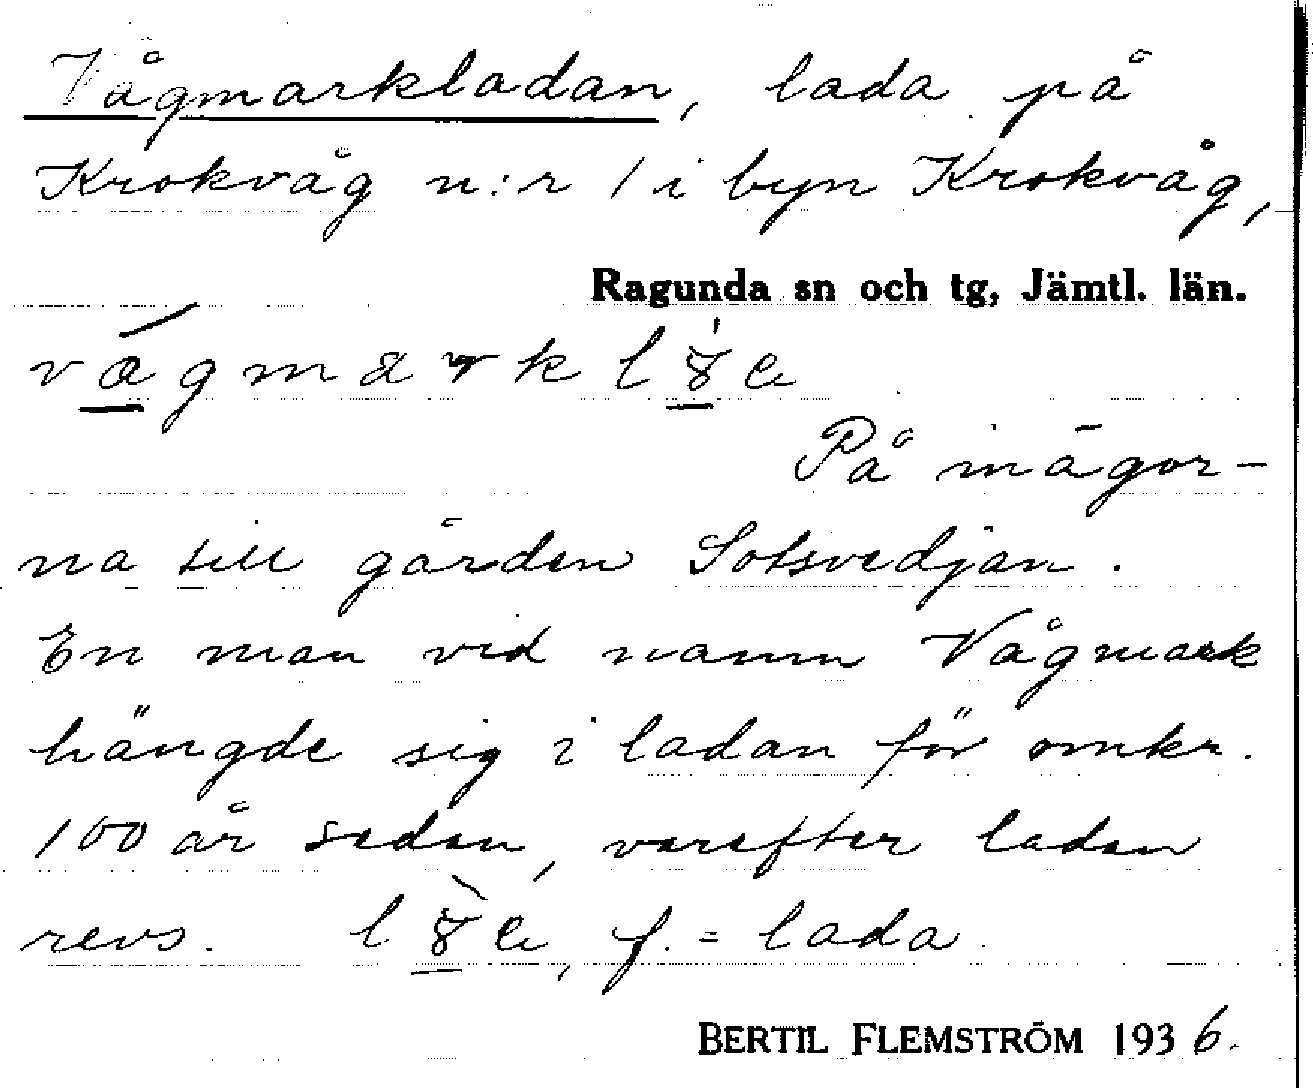 Vågmarkladan, lada på
Krokvåg n:r 1 i byn Krokvåg,
Ragunda sn och tg, Jämtl. län.
På inägor-
na till gården Sotsvedjan.
En man vid namn Vågmark
hängde sig i ladan för omkr.
100 år sedan, varefter ladan
revs. f. = lada.
BERTIL FLEMSTRÖM 1936.